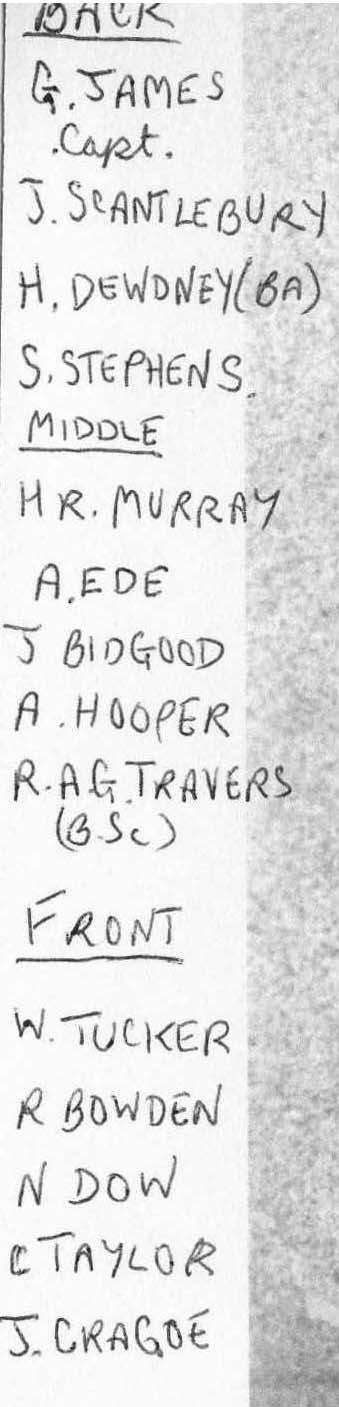 BACK
G. JAMES
Capt.
J. SCANTLEBURY
H. DEWDNEY (BA)
S. STEPHENS.
MIDDLE
H R. MURRAY
A. EDE
J BIDGOOD
A. HOOPER
R. A G. TRAVERS
(B.Sc)
FRONT
W. TUCKER
R BOWDEN
N DOW
C TAYLOR
J. CRAGOE